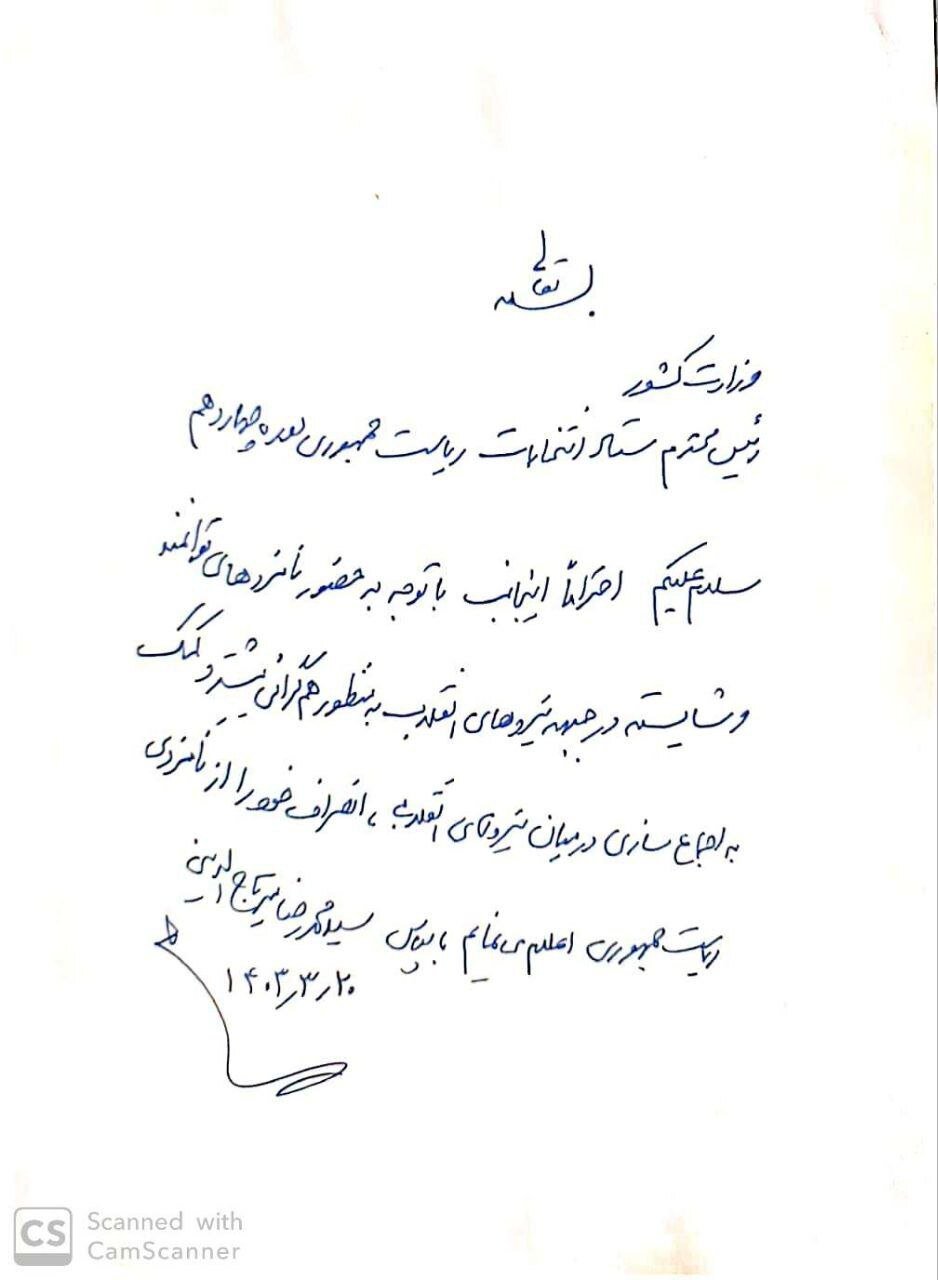 بسمه تعالی
وزارت کشور
رئیس محترم ستاد انتخابات ریاست جمهوری دوره چهاردهم
سلام علیکم احتراماً اینجانب با توجه به حضور نامزدهای توانمند
و شایسته در جبهه نیروهای انقلاب به منظور هم گرائی بیشتر و کمک
به اجماع سازی در میان نیروهای انقلابی، انصراف خود را از نامزدی
ریاست جمهوری اعلام می نمایم با سپاس سید محمدرضا میرتاج الدینی
۱۴۰۳/۳/۲۰
CS Scanned with
CamScanner